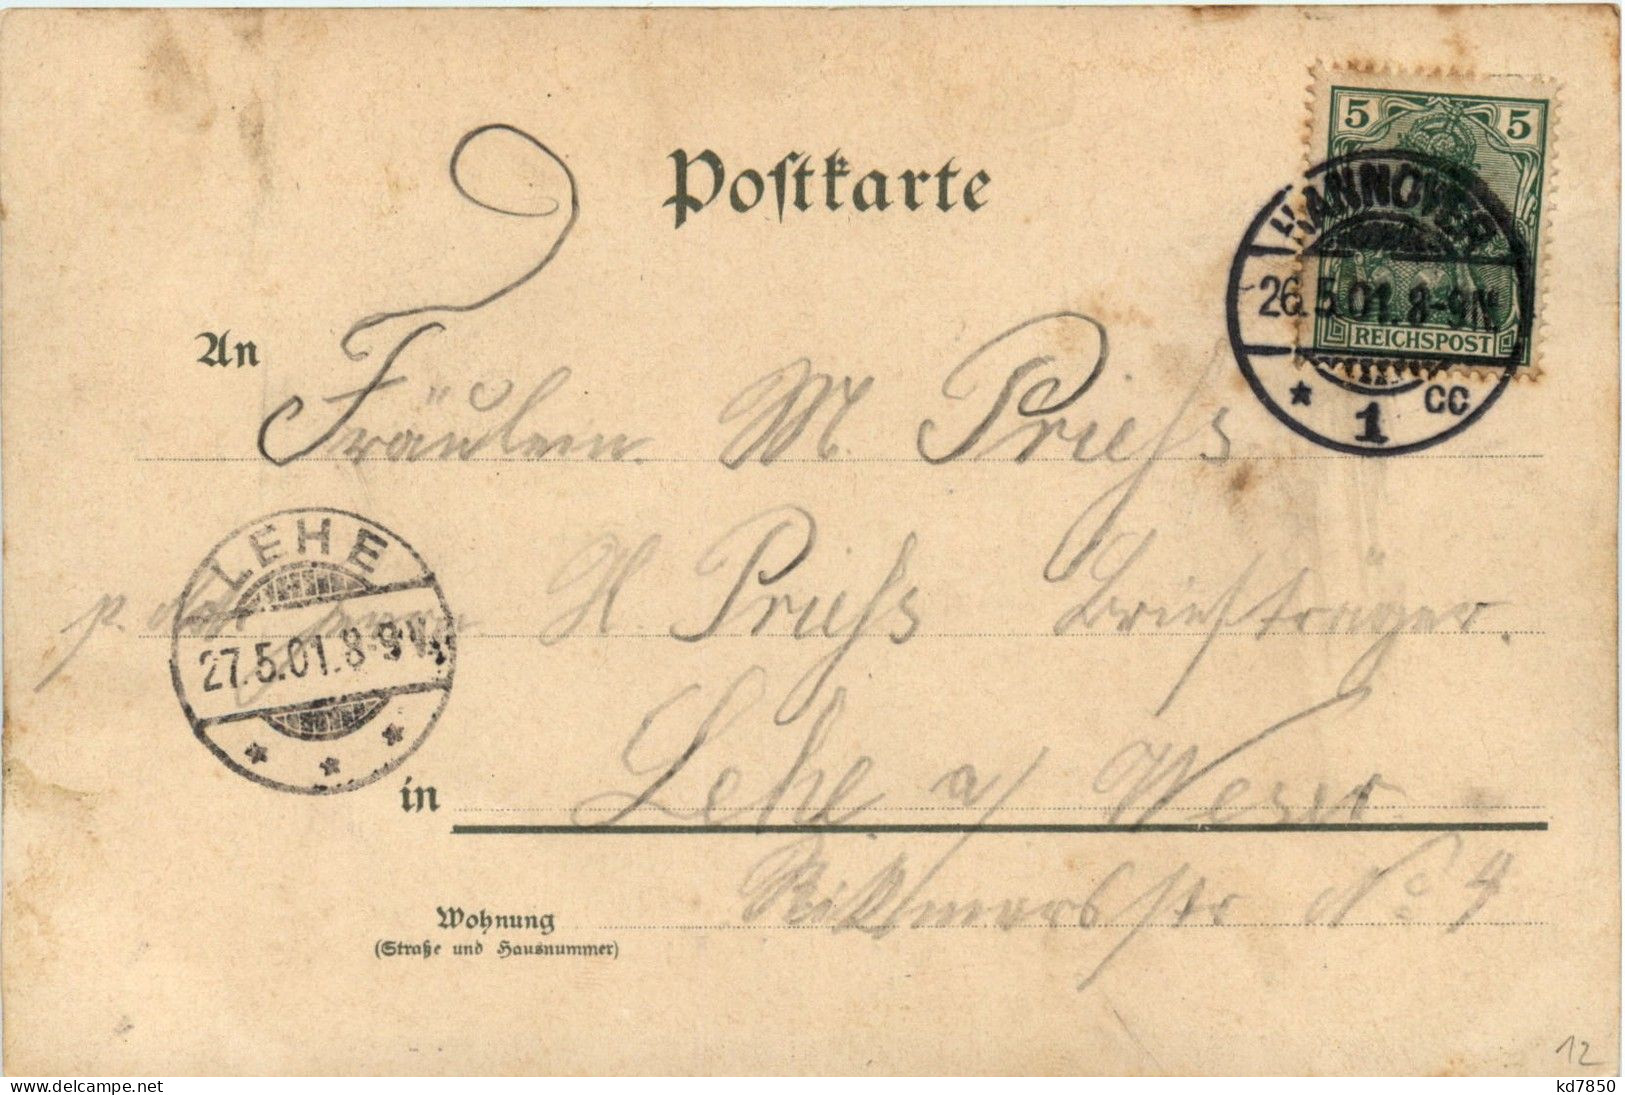 Postkarte
5 5
REICHSPOST
HANNOVER
26.5.01.8-9N.
* 1 CC
An Fräulein M. Prieß
LEHE
27.5.01.8-9V.
* * *
p. H Prieß Briefträger.
in Lehe a/ Weser
Wohnung
(Straße und Hausnummer)
str No 4
12
kd7850